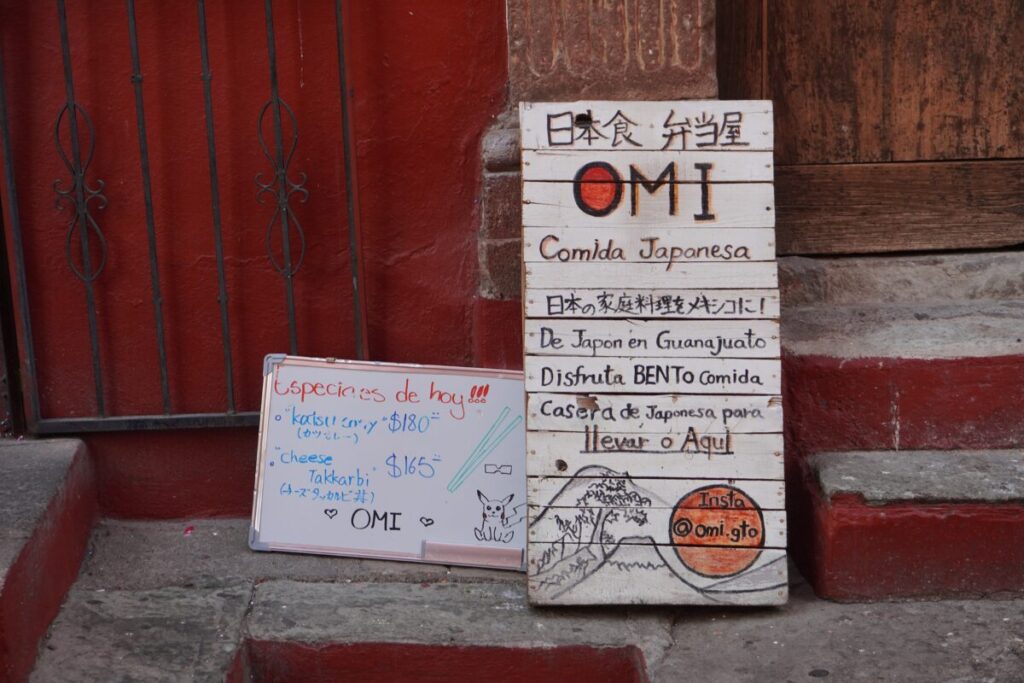 日本食 弁当屋
OMI
Comida Japonesa
日本の家庭料理をメキシコに!
De Japón en Guanajuato
Disfruta BENTO comida
Casera de Japonesa para
llevar o Aquí
Insta
@omi.gto
Especiales de hoy!!!
"Katsu curry" $180
(カツカレー)
"Cheese
Takkarbi" $165
(チーズタッカルビ丼)
OMI